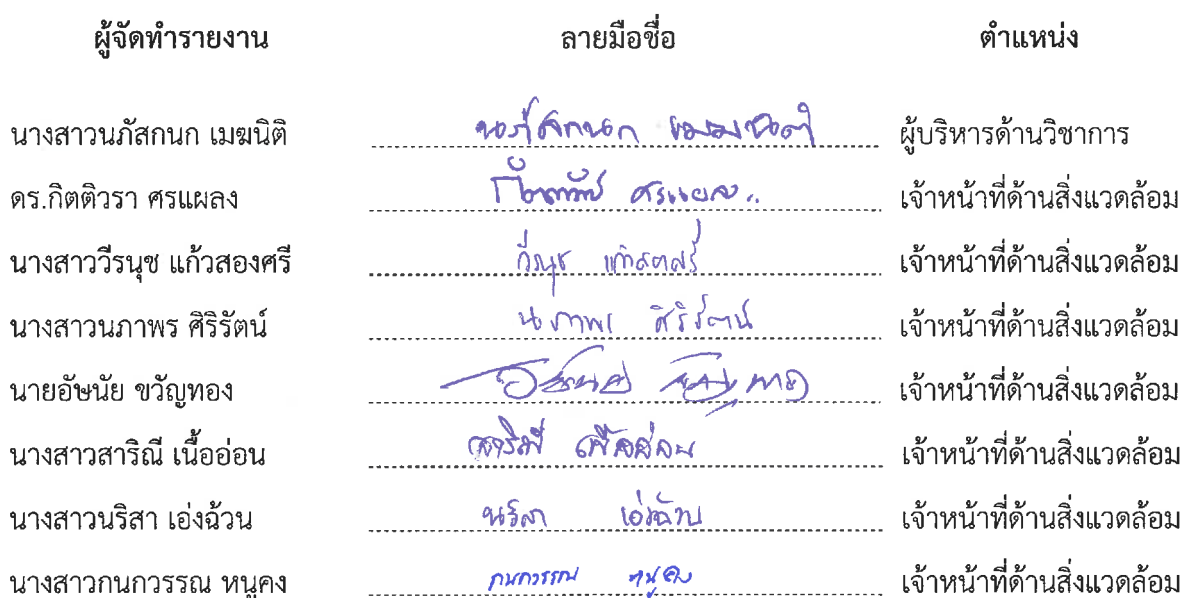 ผู้จัดทำรายงาน ลายมือชื่อ ตำแหน่ง
นางสาวนภัสกนก เมฆนิติ นภัสกนก เมฆนิติ ผู้บริหารด้านวิชาการ
ดร.กิตติวรา ศรแผลง ศรแผลง เจ้าหน้าที่ด้านสิ่งแวดล้อม
นางสาววีรนุช แก้วสองศรี วีรนุช แก้วสองศรี เจ้าหน้าที่ด้านสิ่งแวดล้อม
นางสาวนภาพร ศิริรัตน์ นภาพร ศิริรัตน์ เจ้าหน้าที่ด้านสิ่งแวดล้อม
นายอัษนัย ขวัญทอง อัษนัย ขวัญทอง เจ้าหน้าที่ด้านสิ่งแวดล้อม
นางสาวสาริณี เนื้ออ่อน สาริณี เนื้ออ่อน เจ้าหน้าที่ด้านสิ่งแวดล้อม
นางสาวนริสา เอ่งฉ้วน นริสา เอ่งฉ้วน เจ้าหน้าที่ด้านสิ่งแวดล้อม
นางสาวกนกวรรณ หนูคง กนกวรรณ หนูคง เจ้าหน้าที่ด้านสิ่งแวดล้อม